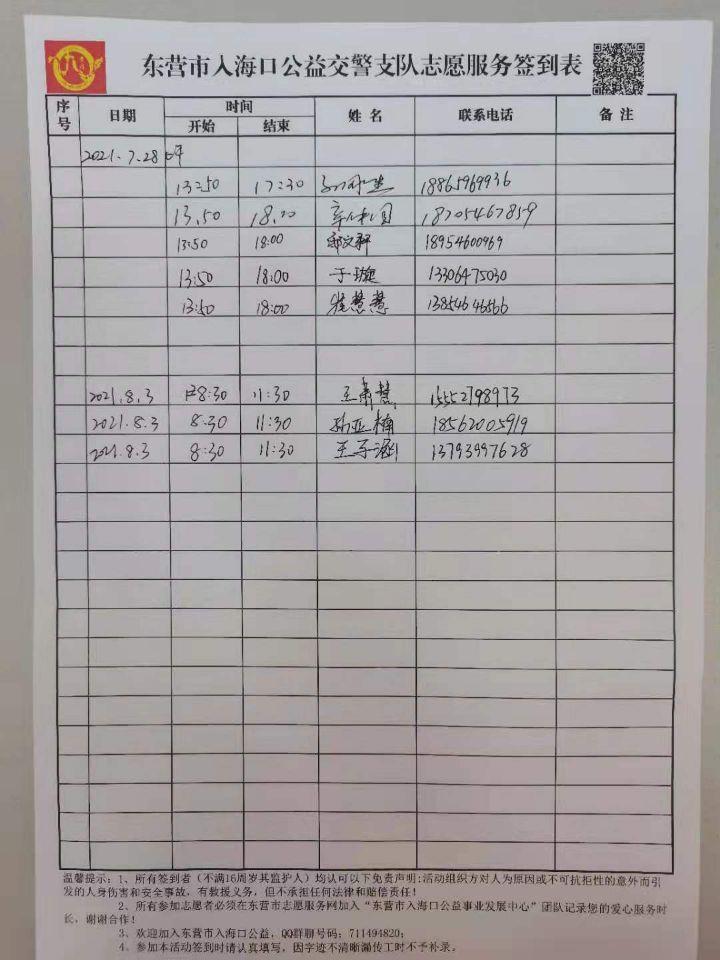 东营市入海口公益交警支队志愿服务签到表
序号 日期 时间 姓名 联系电话 备注
开始 结束
2021.7.28
13:50 17:30 18865969936
13.50 18.00 18705467859
13:50 18:00 18954600969
13:50 18:00 于璇 13306475030
13:50 18:00 崔慧慧 13854646566
2021.8.3 8:30 11:30 王肃慧 15552798973
2021.8.3 8.30 11:30 孙亚楠 18562005919
2021.8.3 8:30 11:30 王子涵 13793997628
温馨提示：1、所有签到者（不满16周岁其监护人）均认可以下免责声明:活动组织方对人为原因或不可抗拒性的意外而引
发的人身伤害和安全事故，有救援义务，但不承担任何法律和赔偿责任！
2、所有参加志愿者必须在东营市志愿服务网加入“东营市入海口公益事业发展中心”团队记录您的爱心服务时
长，谢谢合作！
3、欢迎加入东营市入海口公益，QQ群聊号码：711494820；
4、参加本活动签到时请认真填写，因字迹不清晰漏传工时不予补录。